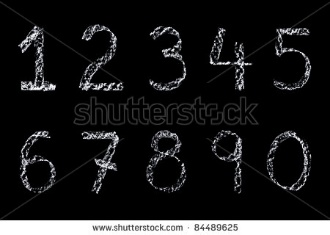 1 2 3 4 5
shutterstock
6 7 8 9 0
www.shutterstock.com · 84489625